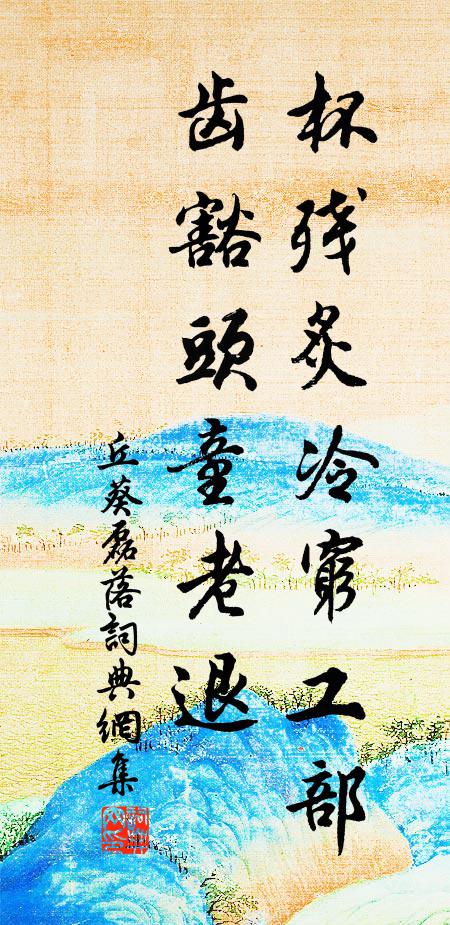 杯残炙冷窮工部
齿豁頭童老退
丘葵磊落詞典網集